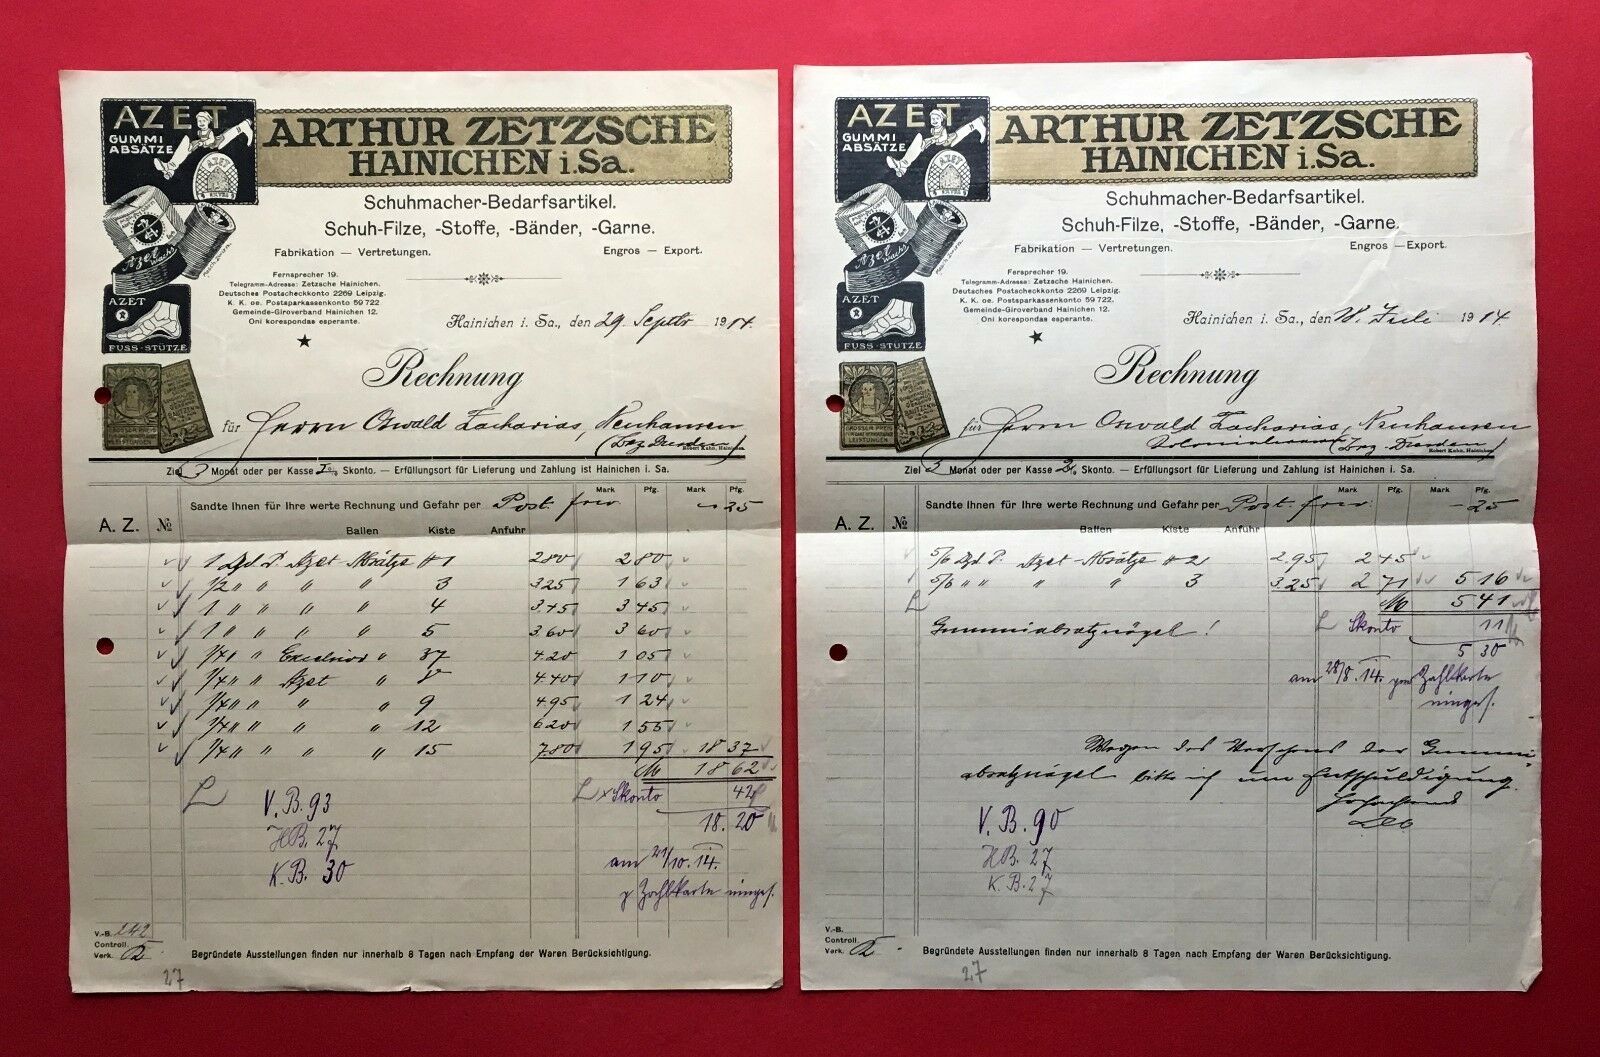 AZET
GUMMI
ABSÄTZE
AZET
ARTHUR ZETZSCHE
HAINICHEN i.Sa.
Schuhmacher-Bedarfsartikel.
Schuh-Filze, -Stoffe, -Bänder, -Garne.
Fabrikation — Vertretungen. Engros — Export.
Azet
wachs
Fernsprecher 19.
Telegramm-Adresse: Zetzsche Hainichen.
Deutsches Postscheckkonto 2269 Leipzig.
K. K. oe. Postsparkassenkonto 59 722
Gemeinde-Giroverband Hainichen 12.
Oni korespondas esperante.
AZET
FUSS-STÜTZE
Hainichen i. Sa., den 29. Septbr 1914.
Rechnung
GROSSER PREIS
LEISTUNGEN
für Herrn Oswald Zacharias, Neuhausen
(Bez. Dresden)
Robert Kuhn, Hainichen.
Ziel 3 Monat oder per Kasse 2% Skonto. — Erfüllungsort für Lieferung und Zahlung ist Hainichen i. Sa.
Mark Pfg. Mark Pfg.
A. Z. № Sandte Ihnen für Ihre werte Rechnung und Gefahr per Post frco — 25
Ballen Kiste Anfuhr
1 Dzd P. Azet Absätze # 1 2.80 2 80
1/2 " " " " 3 3.25 1 63
1 " " " " 4 3.45 3 45
1 " " " " 5 3.60 3 60
1/4 " " Excelsior " 37 4.20 1 05
1/4 " " Azet " 8 4.40 1 10
1/4 " " " " 9 4.95 1 24
1/4 " " " " 12 6.20 1 55
1/4 " " " " 15 7.80 1 95 18 37
M 18 62
Skonto 42
18.20
V. B. 93
HB. 27
K. B. 30
am 21/10. 14.
p Zahlkarte eingez.
V.-B. 242
Controll.
Verk.
Begründete Ausstellungen finden nur innerhalb 8 Tagen nach Empfang der Waren Berücksichtigung.
27
AZET
GUMMI
ABSÄTZE
AZET
ARTHUR ZETZSCHE
HAINICHEN i.Sa.
Schuhmacher-Bedarfsartikel.
Schuh-Filze, -Stoffe, -Bänder, -Garne.
Fabrikation — Vertretungen. Engros — Export.
Azet
wachs
Fernsprecher 19.
Telegramm-Adresse: Zetzsche Hainichen.
Deutsches Postscheckkonto 2269 Leipzig.
K. K. oe. Postsparkassenkonto 59 722
Gemeinde-Giroverband Hainichen 12.
Oni korespondas esperante.
AZET
FUSS-STÜTZE
Hainichen i. Sa., den 28. Juli 1914.
Rechnung
GROSSER PREIS
LEISTUNGEN
für Herrn Oswald Zacharias, Neuhausen
Kolonialwaren (Bez. Dresden)
Robert Kuhn, Hainichen.
Ziel 3 Monat oder per Kasse 2% Skonto. — Erfüllungsort für Lieferung und Zahlung ist Hainichen i. Sa.
Mark Pfg. Mark Pfg.
A. Z. № Sandte Ihnen für Ihre werte Rechnung und Gefahr per Post frco. — 25
Ballen Kiste Anfuhr
5/6 Dzd P. Azet-Absätze # 2 2.95 2 45
5/6 " " " " 3 3.25 2 71 5 16
M 5 41
Gummiabsatznägel! Skonto 11
5 30
am 28/8. 14. per Zahlkarte
eingez.
Wegen des Versehens der Gummi-
absatznägel bitte ich um Entschuldigung.
Hochachtend
V. B. 90
HB. 27
K. B. 27
V.-B.
Controll.
Verk.
Begründete Ausstellungen finden nur innerhalb 8 Tagen nach Empfang der Waren Berücksichtigung.
27